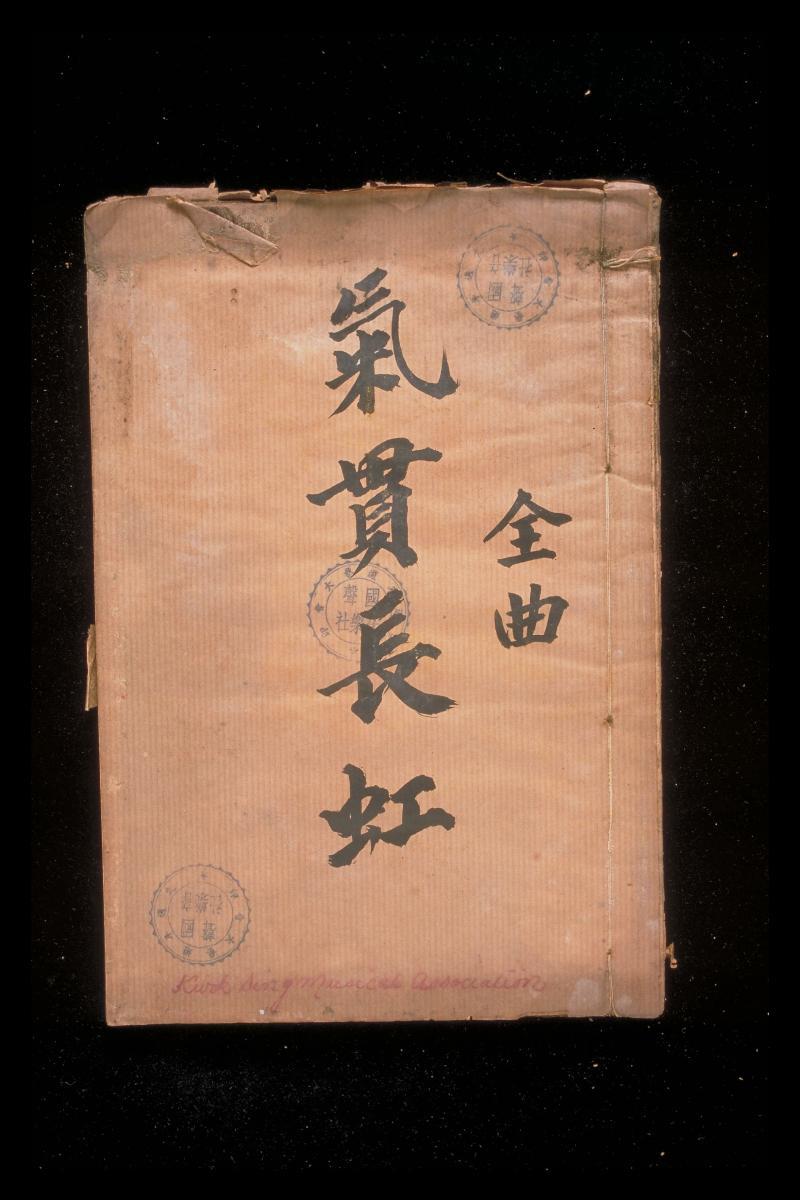 全曲
氣貫長虹
國聲
樂社
Kwok Sing Musical Association